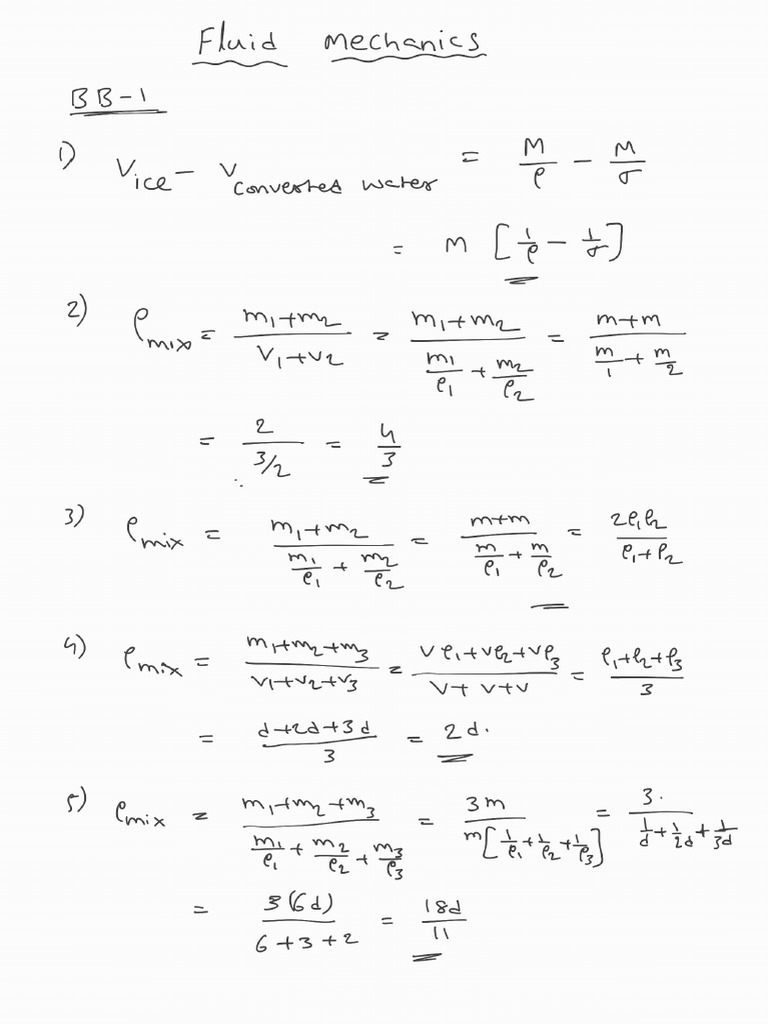 Fluid mechanics
BB-1
1) V_ice - V_converted water = M/ρ - M/σ
= M [1/ρ - 1/σ]
2) ρ_mix = (m₁+m₂)/(V₁+V₂) = (m₁+m₂)/(m₁/ρ₁ + m₂/ρ₂) = (m+m)/(m/1 + m/2)
= 2/(3/2) = 4/3
3) ρ_mix = (m₁+m₂)/(m₁/ρ₁ + m₂/ρ₂) = (m+m)/(m/ρ₁ + m/ρ₂) = 2ρ₁ρ₂/(ρ₁+ρ₂)
4) ρ_mix = (m₁+m₂+m₃)/(V₁+V₂+V₃) = (Vρ₁+Vρ₂+Vρ₃)/(V+V+V) = (ρ₁+ρ₂+ρ₃)/3
= (d+2d+3d)/3 = 2d.
5) ρ_mix = (m₁+m₂+m₃)/(m₁/ρ₁ + m₂/ρ₂ + m₃/ρ₃) = 3m/(m[1/ρ₁ + 1/ρ₂ + 1/ρ₃]) = 3./(1/d + 1/2d + 1/3d)
= 3(6d)/(6+3+2) = 18d/11